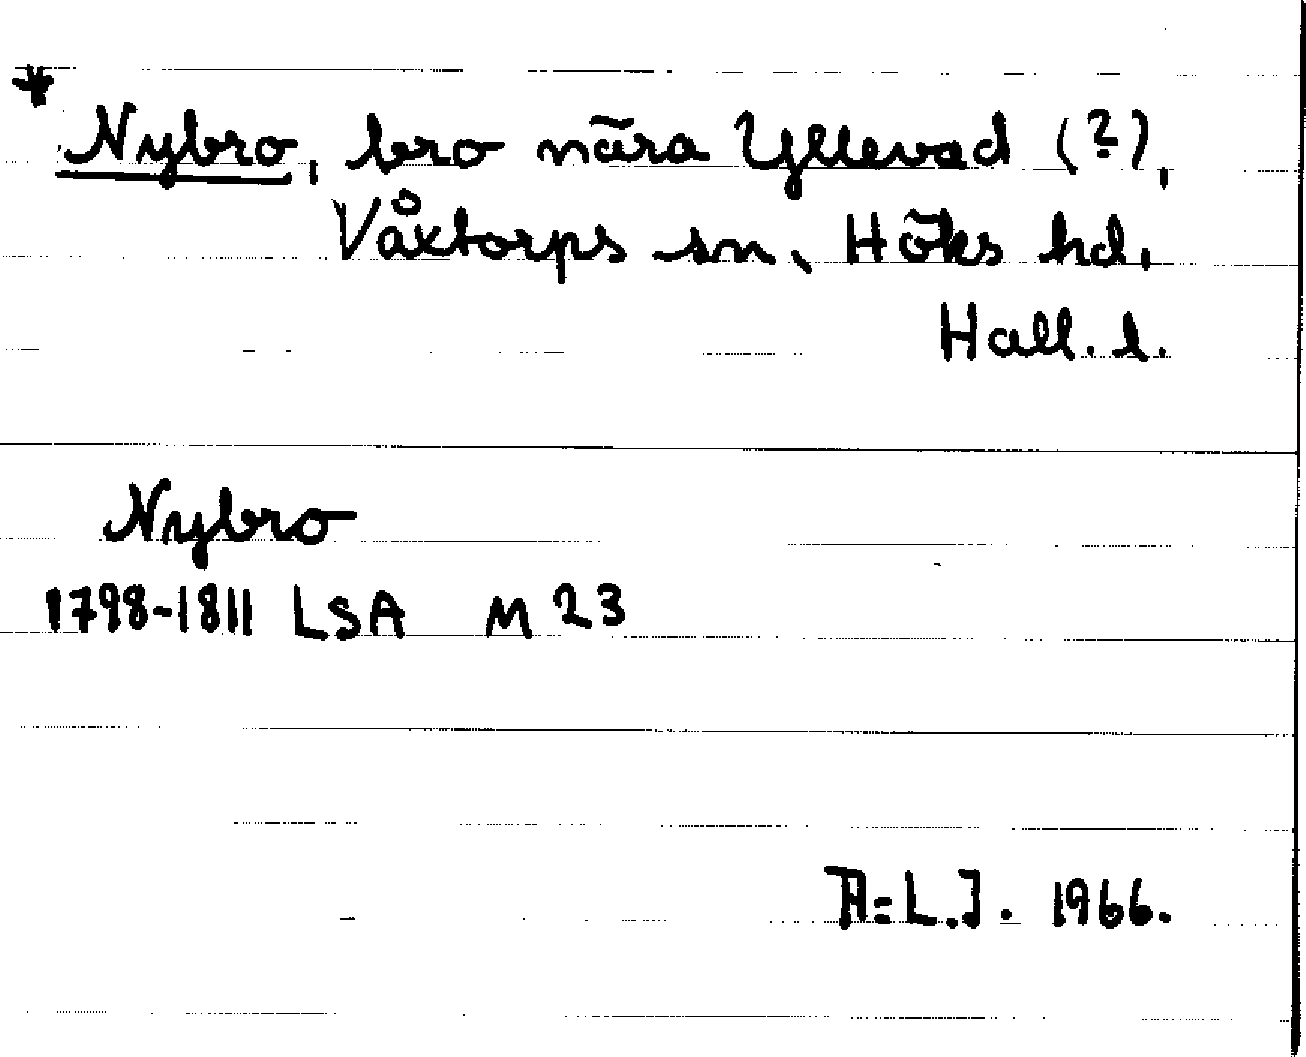 * Nybro, bro nära Yllevad (?),
Våxtorps sn, Höks hd.
Hall. l.
Nybro
1798-1811 LSA M 23
A-L.J. 1966.